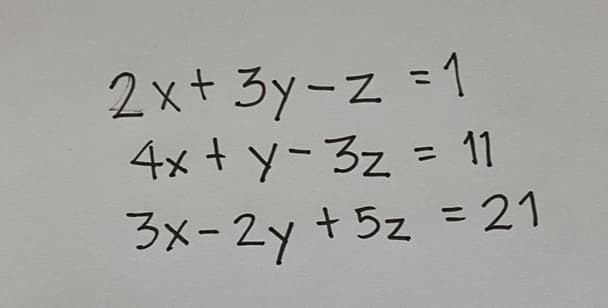 2x + 3y - z = 1
4x + y - 3z = 11
3x - 2y + 5z = 21